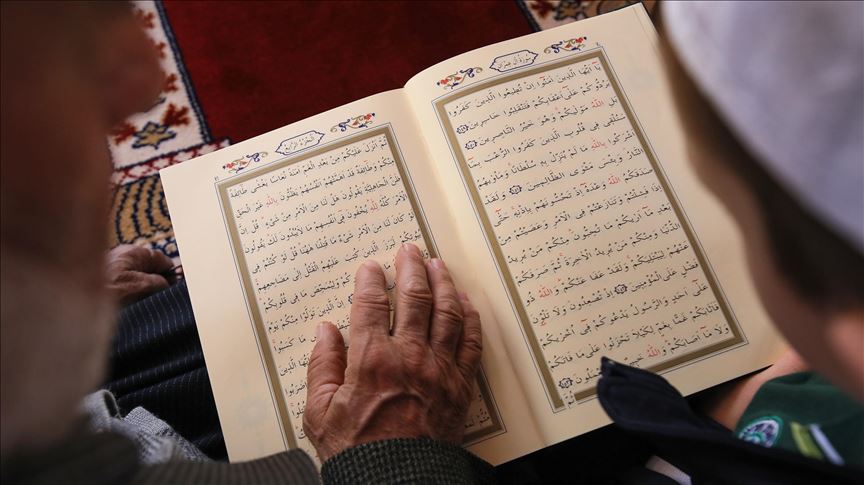 سُورَةُ اٰلِ عِمْرٰنَ
يَا اَيُّهَا الَّذِينَ اٰمَنُوا اِنْ تُطِيعُوا الَّذِينَ كَفَرُوا
يَرُدُّوكُمْ عَلٰى اَعْقَابِكُمْ فَتَنْقَلِبُوا خَاسِرِينَ
بَلِ اللّٰهُ مَوْلٰيكُمْ وَهُوَ خَيْرُ النَّاصِرِينَ
سَنُلْقِى فِى قُلُوبِ الَّذِينَ كَفَرُوا الرُّعْبَ بِمَا
اَشْرَكُوا بِاللّٰهِ مَا لَمْ يُنَزِّلْ بِهِ سُلْطَانًا وَمَاْوٰيهُمُ
النَّارُ وَبِئْسَ مَثْوَى الظَّالِمِينَ وَلَقَدْ
صَدَقَكُمُ اللّٰهُ وَعْدَهُ اِذْ تَحُسُّونَهُمْ بِاِذْنِهِ حَتّٰى
اِذَا فَشِلْتُمْ وَتَنَازَعْتُمْ فِى الْاَمْرِ وَعَصَيْتُمْ مِنْ
بَعْدِ مَا اَرٰيكُمْ مَا تُحِبُّونَ مِنْكُمْ مَنْ يُرِيدُ
الدُّنْيَا وَمِنْكُمْ مَنْ يُرِيدُ الْاٰخِرَةَ ثُمَّ صَرَفَكُمْ
عَنْهُمْ لِيَبْتَلِيَكُمْ وَلَقَدْ عَفَا عَنْكُمْ وَاللّٰهُ ذُو
فَضْلٍ عَلَى الْمُؤْمِنِينَ اِذْ تُصْعِدُونَ وَلَا تَلْوُنَ
عَلٰى اَحَدٍ وَالرَّسُولُ يَدْعُوكُمْ فِى اُخْرٰيكُمْ
فَاَثَابَكُمْ غَمًّا بِغَمٍّ لِكَيْلَا تَحْزَنُوا عَلٰى مَا فَاتَكُمْ
وَلَا مَا اَصَابَكُمْ وَاللّٰهُ خَبِيرٌ تَعْمَلُونَ
ثُمَّ
اَلْجُزْءُ الرَّابِعُ
ثُمَّ اَنْزَلَ عَلَيْكُمْ مِنْ بَعْدِ الْغَمِّ اَمَنَةً نُعَاسًا يَغْشٰى طَائِفَةً
مِنْكُمْ وَطَائِفَةٌ قَدْ اَهَمَّتْهُمْ اَنْفُسُهُمْ يَظُنُّونَ بِاللّٰهِ غَيْرَ الْحَقِّ
ظَنَّ الْجَاهِلِيَّةِ يَقُولُونَ هَلْ لَنَا مِنَ الْاَمْرِ مِنْ شَىْءٍ قُلْ اِنَّ
الْاَمْرَ كُلَّهُ لِلّٰهِ يُخْفُونَ فِى اَنْفُسِهِمْ مَا لَا يُبْدُونَ لَكَ يَقُولُونَ
لَوْ كَانَ لَنَا مِنَ الْاَمْرِ شَىْءٌ مَا قُتِلْنَا هٰهُنَا قُلْ لَوْ كُنْتُمْ فِى
بُيُوتِكُمْ لَبَرَزَ الَّذِينَ كُتِبَ عَلَيْهِمُ الْقَتْلُ اِلٰى مَضَاجِعِهِمْ
وَلِيُمَحِّصَ مَا فِى قُلُوبِكُمْ
اِنَّ الَّذِينَ تَوَلَّوْا مِنْكُمْ يَوْمَ
مَا كَسَبُوا